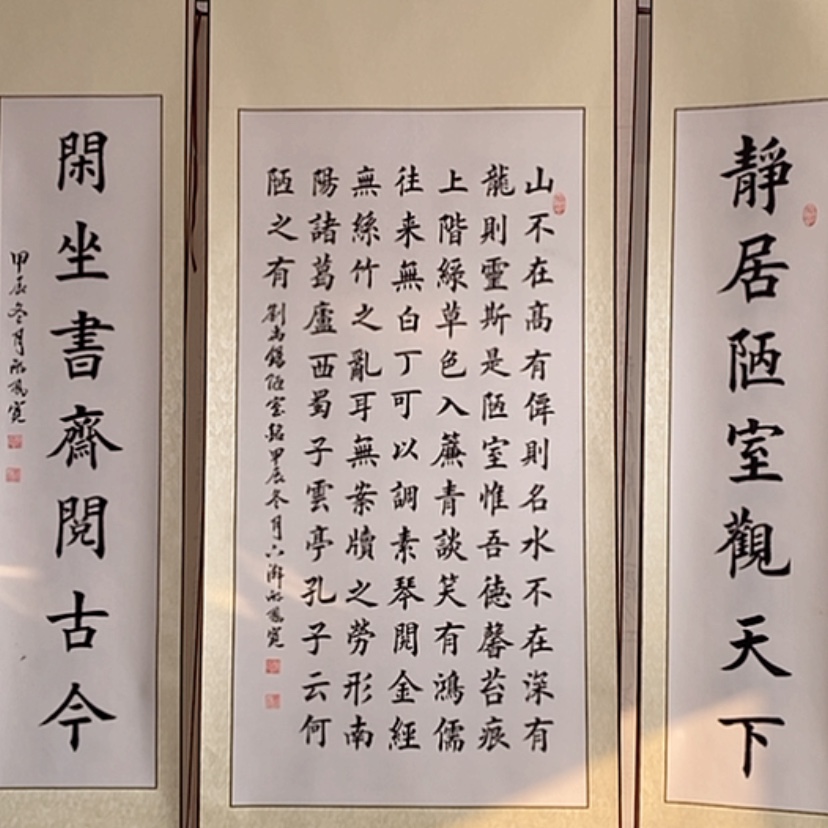 靜居陋室觀天下
山不在高有僊則名水不在深有
龍則靈斯是陋室惟吾德馨苔痕
上階綠草色入簾青談笑有鴻儒
往来無白丁可以調素琴閱金經
無絲竹之亂耳無案牘之勞形南
陽諸葛廬西蜀子雲亭孔子云何
陋之有 劉禹錫陋室銘甲辰冬月
閑坐書齋閱古今
甲辰冬月